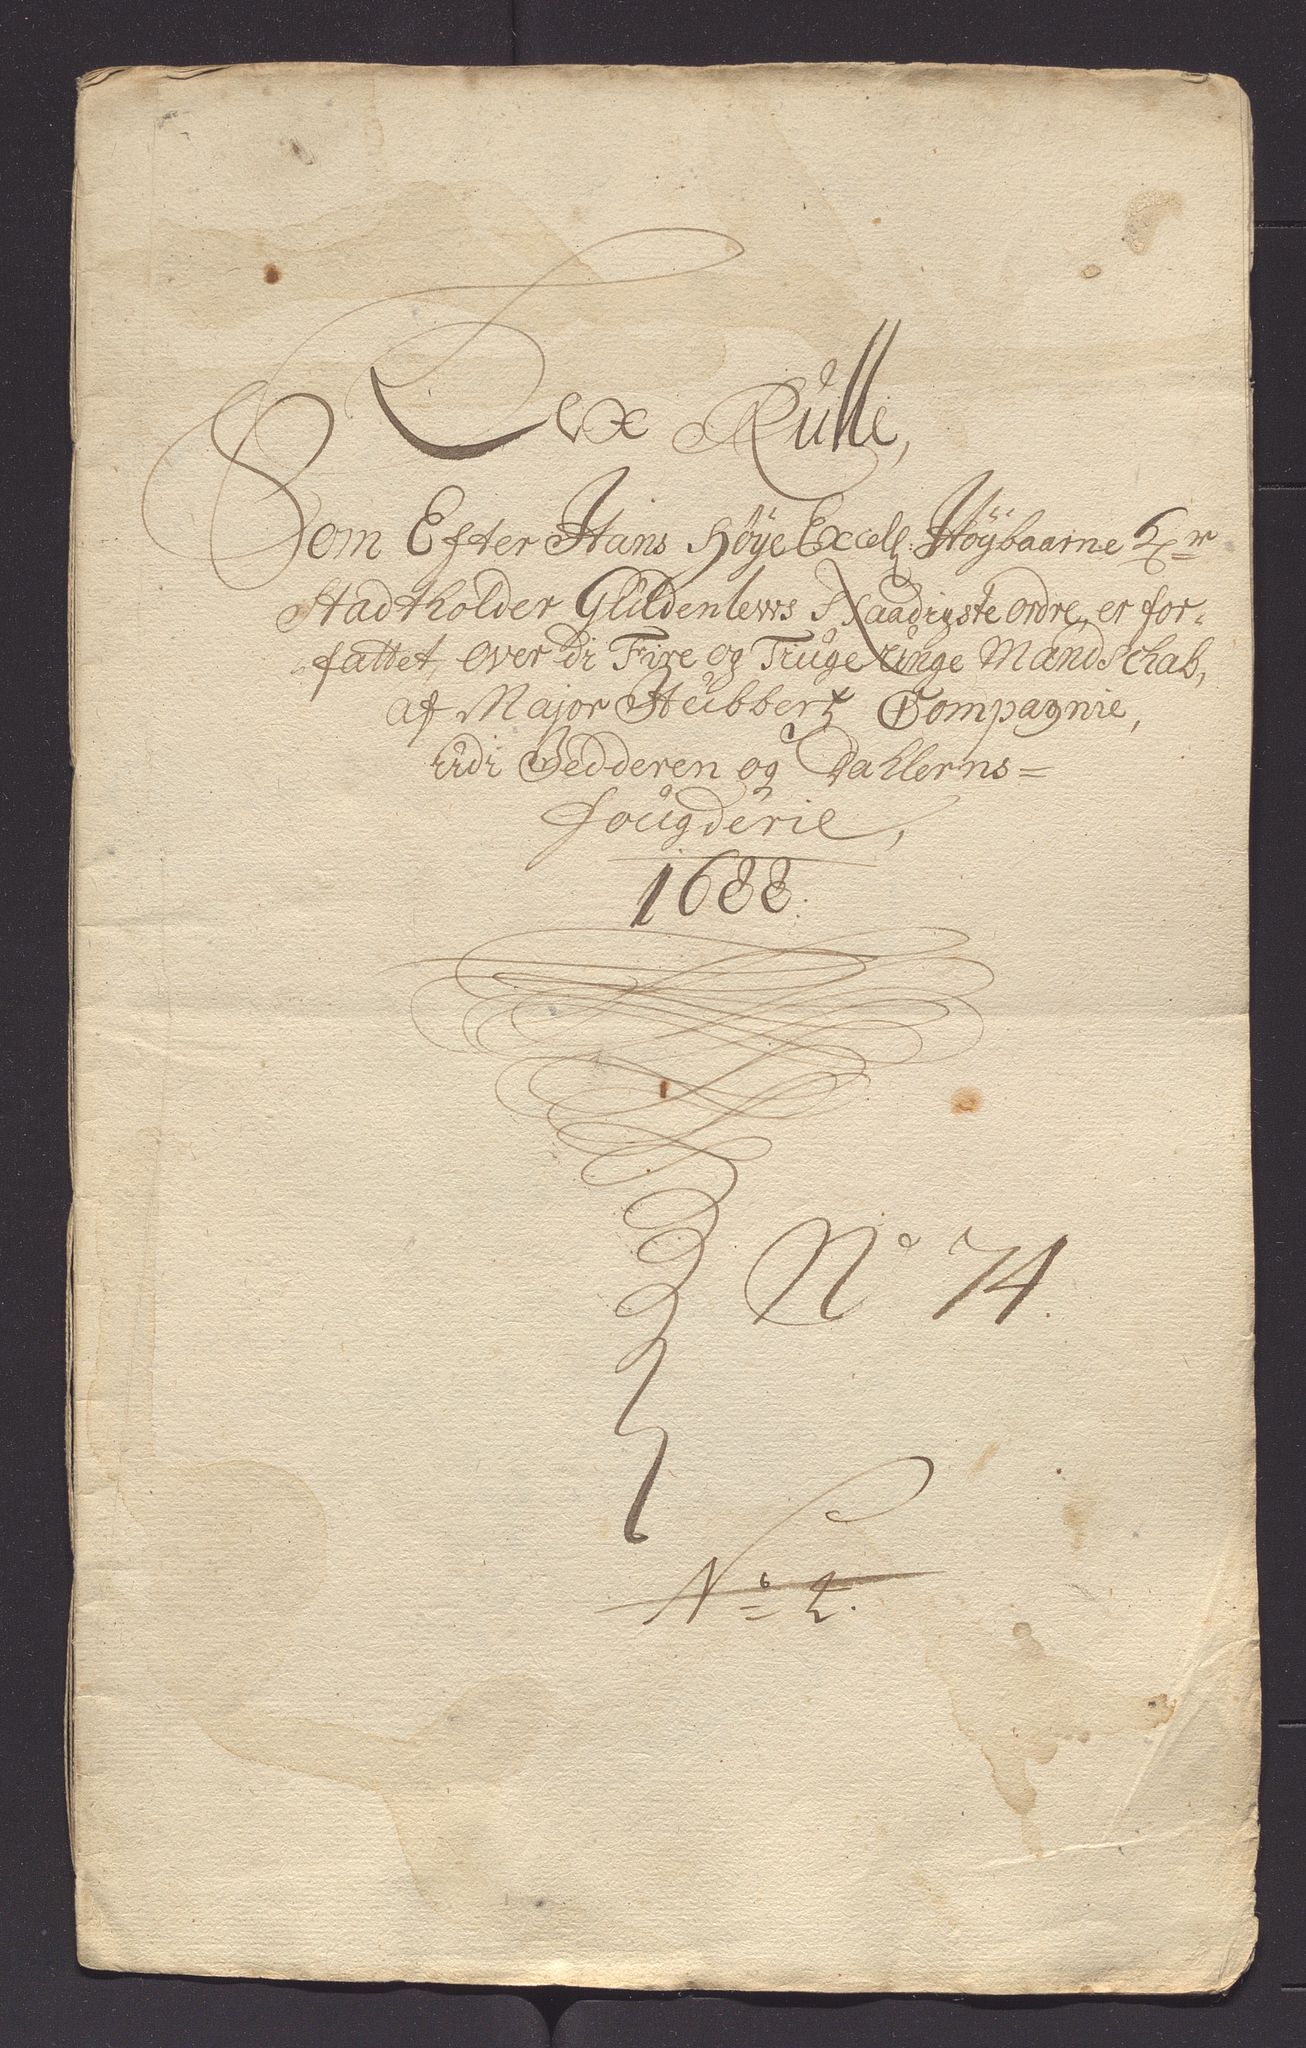 Lex Rülle,
Som Efter Hans Høye Excell: Höybaarne Hr
Stadtholder Güldenlews Naadigste ordre, er for-
fattet, over di Fire og Tiuge unge Mandschab,
af Major Hübbertz Compagnie,
udi Nedderen og Dahlerns=
fougderie,
1688.
No 74.
No 2.